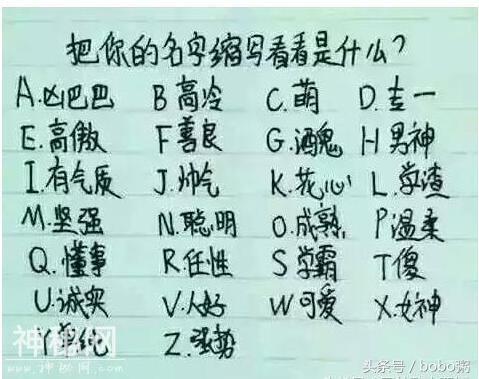 把你的名字缩写看看是什么?
A.凶巴巴 B高冷 C.萌 D.专一
E.高傲 F善良 G.酒鬼 H男神
I.有气质 J.帅气 K.花心 L.学渣
M.坚强 N.聪明 O.成熟 P温柔
Q.懂事 R.任性 S学霸 T傻
U.诚实 V.人好 W可爱 X.女神
Y 纯 Z.强势
神秘网
头条号 / bobo粥